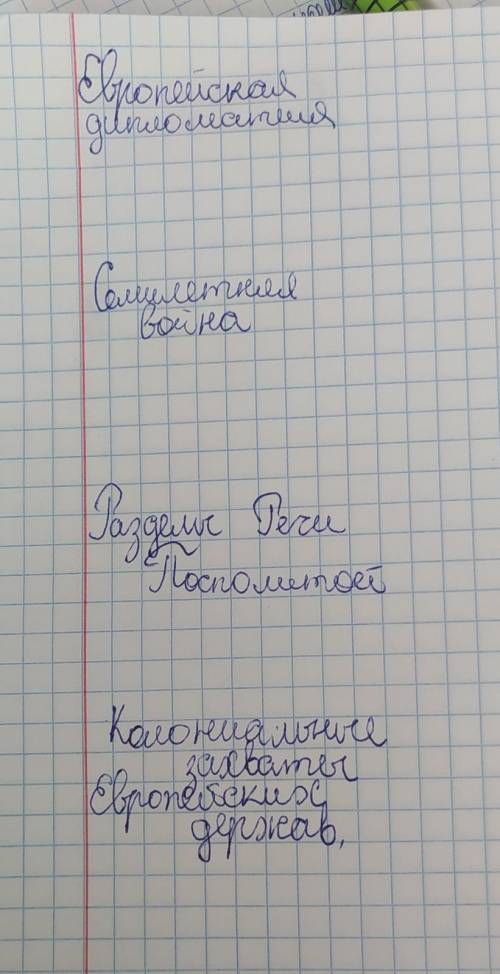 Европейская
дипломатия
Семилетняя
война
Разделы Речи
Посполитой
Колониальные
захваты
Европейских
держав.